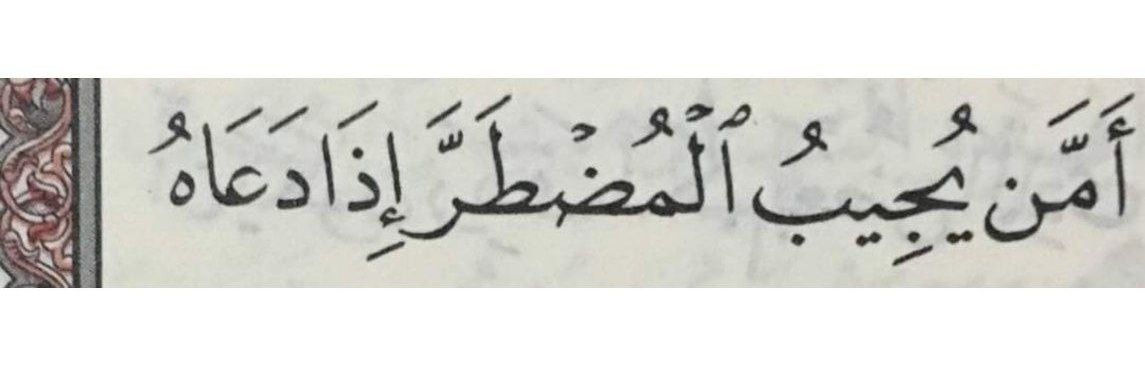 أَمَّن يُجِيبُ ٱلْمُضْطَرَّ إِذَا دَعَاهُ